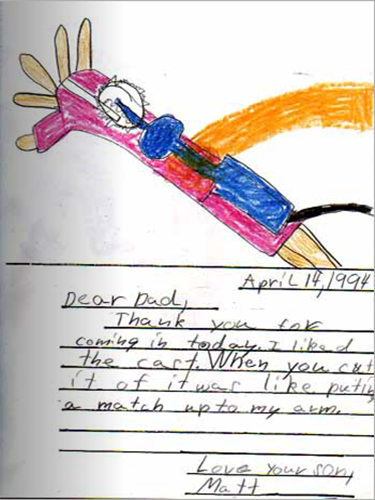 April 14, 1994
Dear Dad,
Thank you for
coming in today. I liked
the cast. When you cut
it of it was like puting
a match up to my arm.
Love your son,
Matt